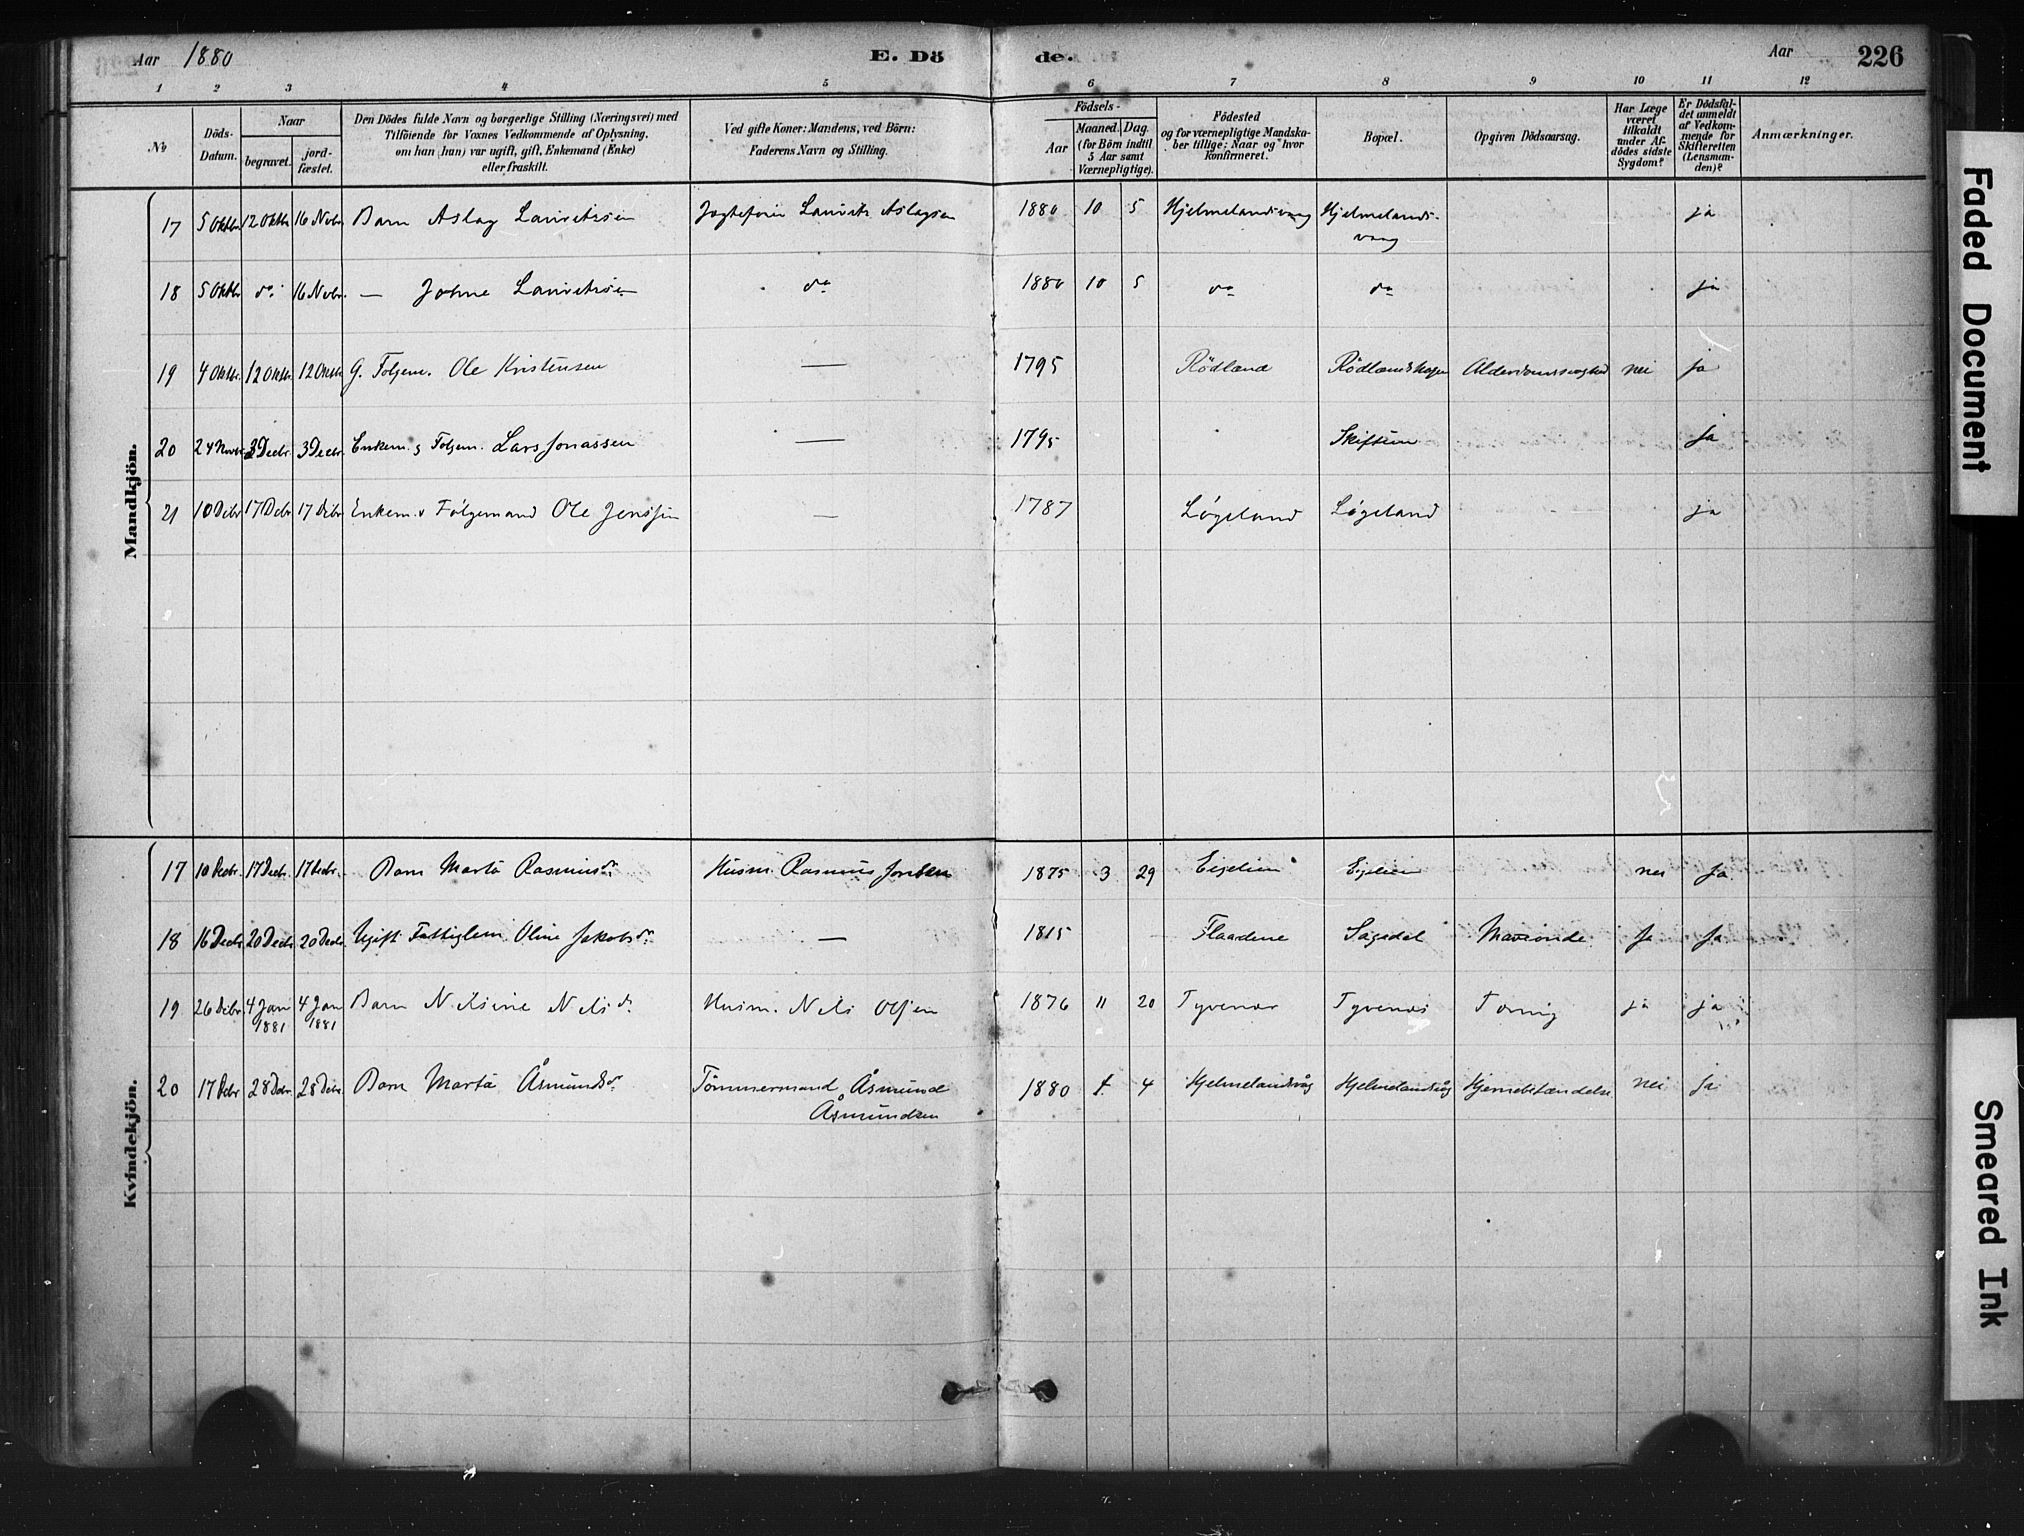 Aar 1880 E. Döde. Aar 226
1 2 3 4 5 6 7 8 9 10 11 12
No
Döds-Datum.
Naar
begravet.
jord-fæstet.
Den Dödes fulde Navn og borgerlige Stilling (Næringsvei) med
Tilföiende for Voxnes Vedkommende af Oplysning,
om han (hun) var ugift, gift, Enkemand (Enke)
eller fraskilt.
Ved gifte Koner: Mandens, ved Börn:
Faderens Navn og Stilling.
Födsels-
Aar
Maaned. Dag.
(for Börn indtil
5 Aar samt
Værnepligtige).
Födested
og for værnepligtige Mandska-
ber tillige: Naar og hvor
konfirmeret.
Bopæl.
Opgiven Dödsaarsag.
Har Læge
været
tilkaldt
under Af-
dödes sidste
Sygdom?
Er Dödsfal-
det anmeldt
af Vedkom-
mende for
Skifteretten
(Lensman-
den)?
Anmærkninger.
Mandkjön.
17 5 Oktbr 12 Oktbr 16 Novbr. Barn Aslag Lauritsen Jagtefører Laurits Aslagsen 1880 10 5 Hjelmelandsvaag Hjelmelands-
vaag ja
18 5 Oktbr do 16 Novbr. — Johne Lauritsen do 1880 10 5 do do ja
19 4 Oktbr. 12 Oktbr. 12 Oktbr. G. Følgem. Ole Kristensen — 1795 Rödland Rödlandshagen Alderdomssvaghed nei ja
20 24 Novbr. 3 Decbr. 3 Decbr. Enkem. & Følgem. Lars Jonassen — 1795 Skiftun Ja
21 10 Debr 17 Debr 17 Debr Enkem. & Følgemand Ole Jensen — 1787 Løgeland Løgeland ja
Kvindekjön.
17 10 Decbr. 17 Decbr. 17 Decbr. Barn Marta Rasmusdr. Husm. Rasmus 1875 3 29 Eigelien Eigelien nei Ja
18 16 Decbr 20 Decbr 20 Decbr. Ugift Fattiglem Oline Jakobsdr. — 1815 Flaadene Sagedal Maveonde Ja Ja
19 26 Debr 4 Jan 4 Jan Barn Nilsine Nilsdr. Husm. Nils Olsen 1876 11 20 Tyvenes Tyvenes Tæring ja ja
1881 1881
20 17 Debr 28 Debr. 28 Debr. Barn Marta Åsmundsdr. Tömmermand Åsmund 1880 4 Hjelmelandsvåg Hjelmelandsvåg Hjernebetændelse nei ja
Åsmundsen
Faded Document
Smeared Ink